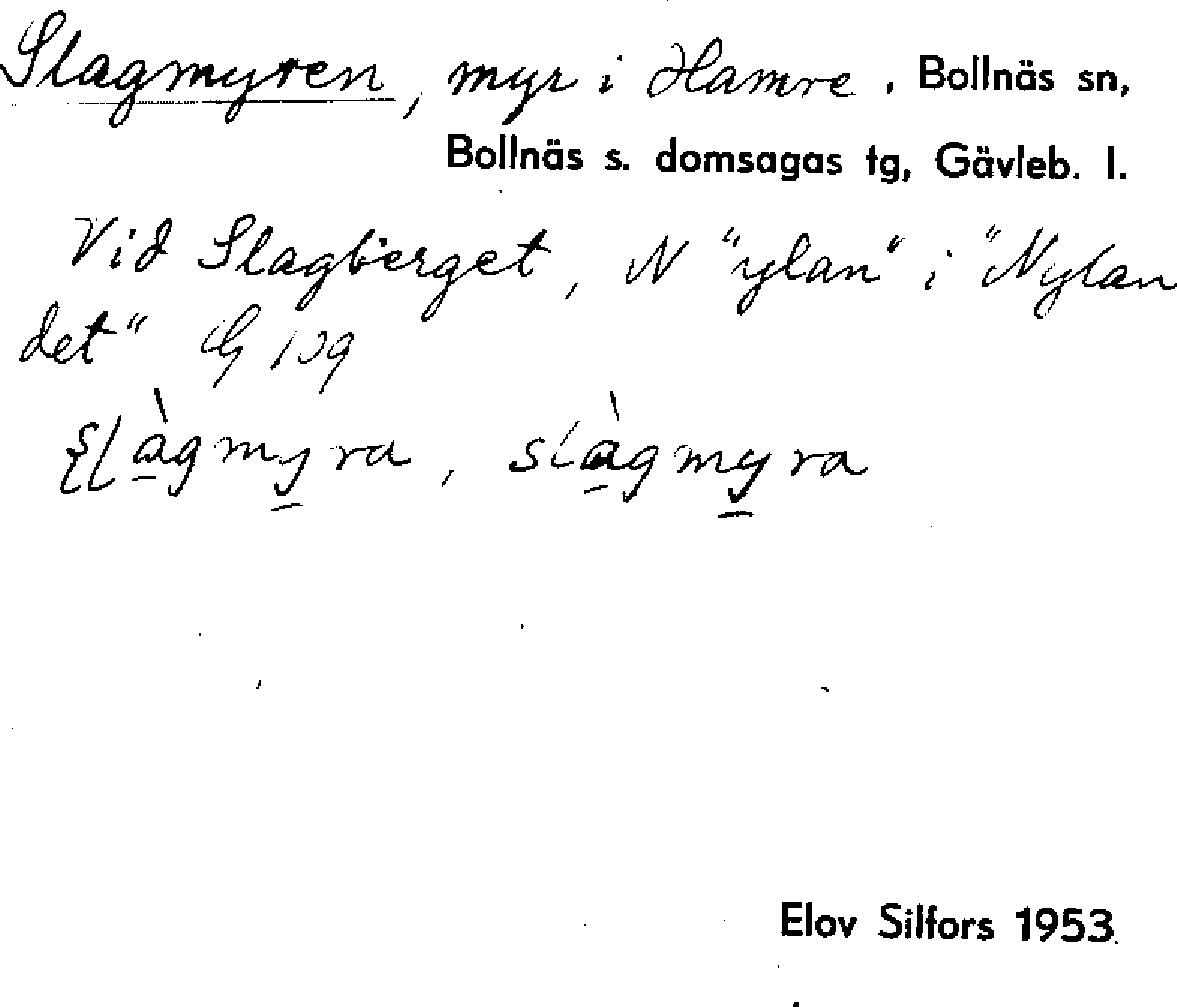 Slagmyren, myr i Hamre, Bollnäs sn,
Bollnäs s. domsagas tg, Gävleb. l.
Vid Slagberget, N "ylan" i "Nylan
det" 139
slàgmyra, slàgmyra
Elov Silfors 1953.